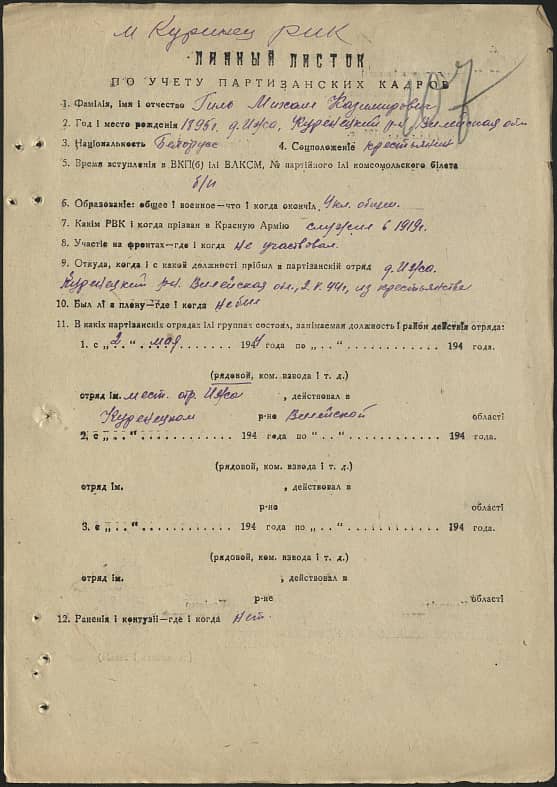 м Куринец РИК
ЛИЧНЫЙ ЛИСТОК
ПО УЧЕТУ ПАРТИЗАНСКИХ КАДРОВ
1. Фамілія, імя і отчество Гиль Михаил Казимирович
2. Год і место рождения 1895г. д. Ижа, Куренецкий р-н, Вилейская обл
3. Національность Белорус 4. Соцположеніе крестьянин
5. Время вступления в ВКП(б) ілі ВЛКСМ, № партийного ілі комсомольского білета
б/п
6. Образованіе: общее і военное—что і когда окончіл 4 кл. общее.
7. Какім РВК і когда прізван в Красную Армію служил в 1919г.
8. Участіе на фронтах—где і когда не участвовал.
9. Откуда, когда і с какой должності прібыл в партізанскій отряд д. Ижа.
Куренецкий р-н. Вилейская обл., 2.V.44г., из крестьянства
10. Был лі в плену—где і когда не был
11. В какіх партізанскіх отрядах ілі группах состоял, занімаемая должность і район действія отряда:
1. с „ 2. “ мая 1944 года по „ . . “ . . . . . . . . . . . . 194 года.
(рядовой, ком. взвода і т. д.)
отряд ім. мест. отр. Ижа , действовал в
Куренецком р-не Вилейской області
2. с „ . . “ . . . . . . . . . . . . 194 года по „ . . “ . . . . . . . . . . . . 194 года.
(рядовой, ком. взвода і т. д.)
отряд ім. , действовал в
р-не області
3. с „ . . “ . . . . . . . . . . . . 194 года по „ . . “ . . . . . . . . . . . . 194 года.
(рядовой, ком. взвода і т. д.)
отряд ім. , действовал в
р-не області
12. Раненія і контузіі—где і когда нет.